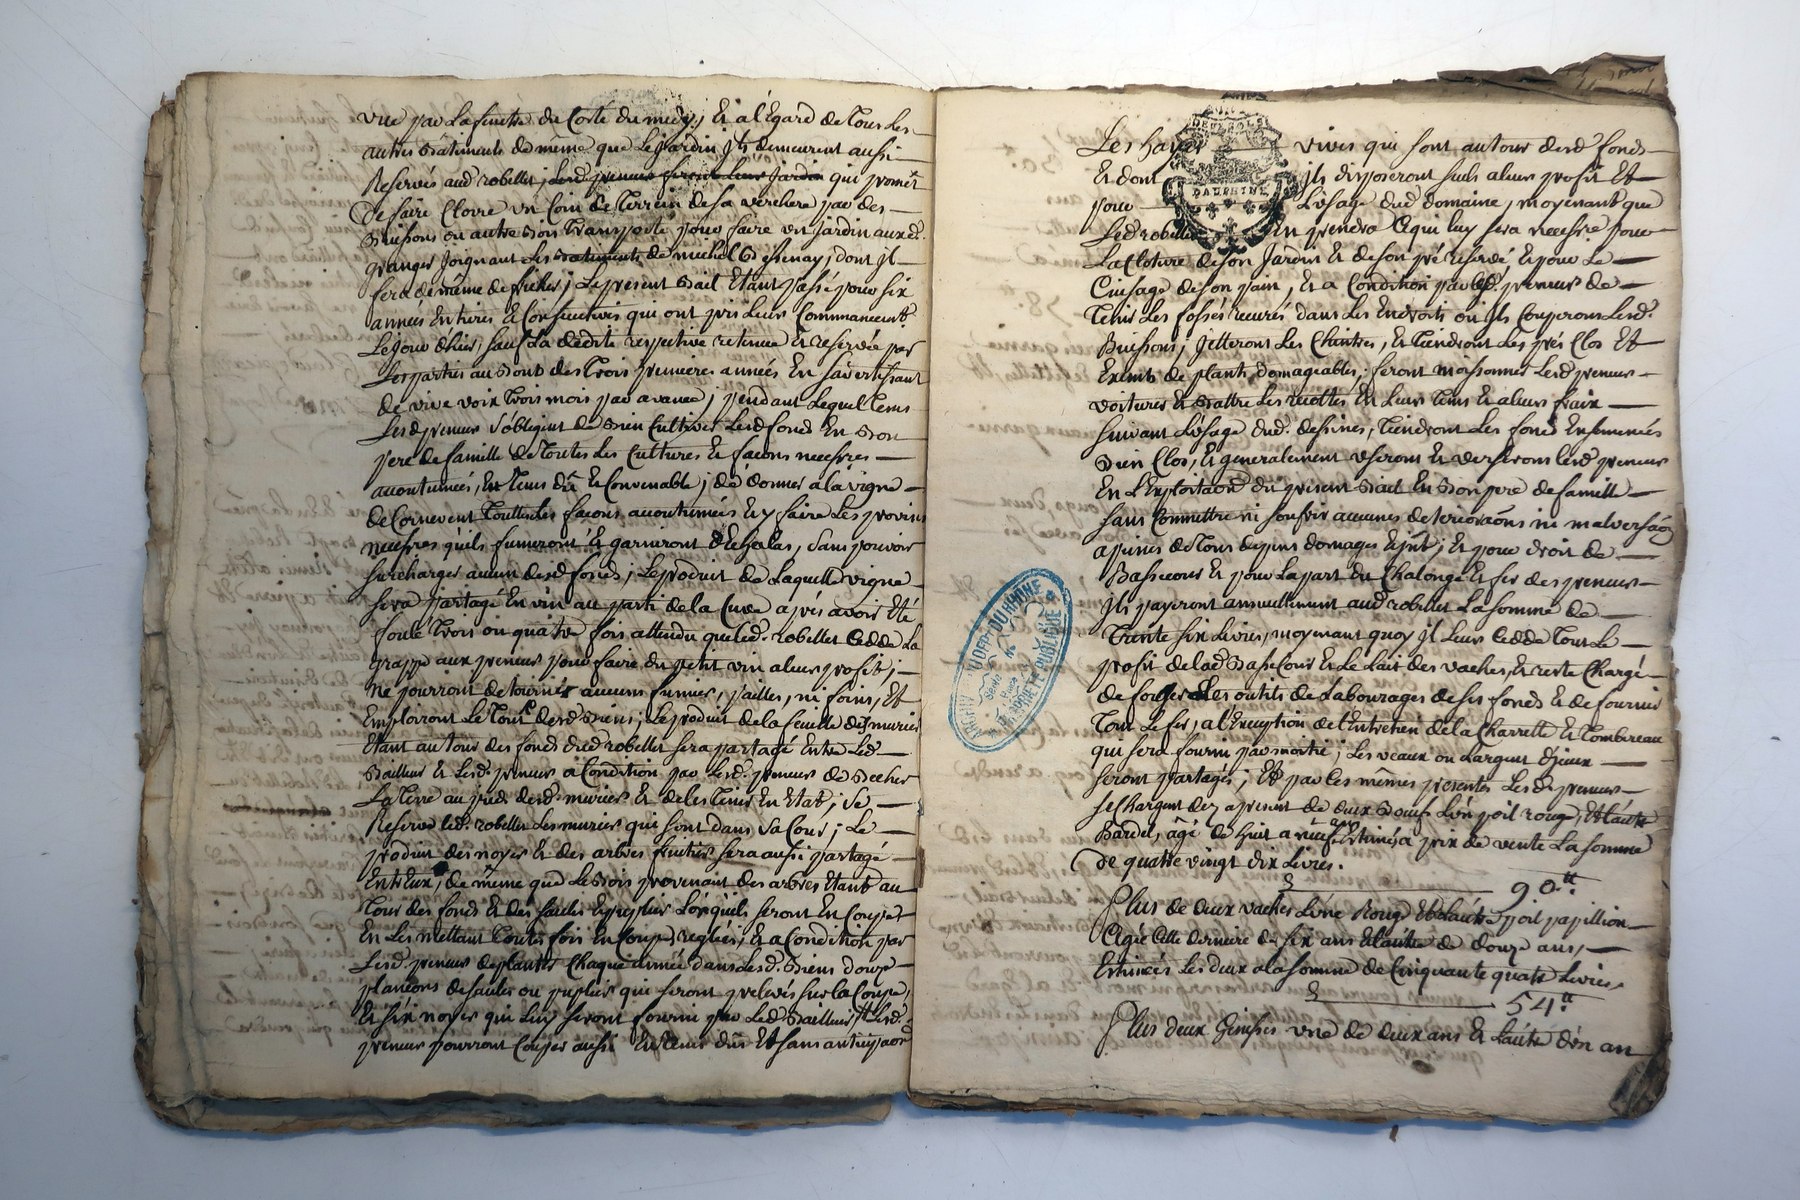 vüe par La fenettre du Costé du midy; Et a l'Egard de Tous Les
autres Batiments de même que Le Jardin Ils demeurent aussi
Reservés aud robellet; Lesd preneurs feront Leur Jardin qui promet
de faire Clorre un Coin de Terrein de sa verchere par des
Buissons ou autre Bois Transporté pour faire un jardin auxd.
granger Joignant Les Batiments de michel dont Il
sera de même ; Le present Bail Etant passé pour six
années Entieres Et Consecutives qui ont pris Leur Commencemt.
Le Jour d'hier, sauf La dedite respective retenue Et reservée par
Les parties au Bout des Trois premieres années En s'avertissant
de vive voix Trois mois par avance; pendant Lequel Tems
Lesd preneurs s'obligent de Bien Cultiver Lesd fonds En Bon
pere de famille de Toutes Les Cultures Et facons necessres
acoutumées, En Tems dû Et Convenable; de donner a la vigne
de Cornevent Touttes Les facons acoutumées En y faire Les provins
necessres qu'ils fumeront Et garniront d'Echalas, sans pouvoir
surcharger aucun desd fonds; Le produit de Laquelle vigne
sera partagé En vin au parti de la Cuve après avoir Eté
foulé Trois ou quatre fois attendu que led. robellet Cedde La
grappe aux preneurs pour faire du petit vin a leur profit;
ne pourront detourner aucuns fumier, pailles, ni foins, Et
Emploiront Le Tout desd Biens; Le produit de la feuille des muriers
Etant autour des fonds dud robellet sera partagé Entre Led
Bailleur Et Lesd. preneurs a Condition par Lesd. preneurs de Becher
La Terre au pied desd. muriers Et de les Tenir En Etat; Se
Reserve led. robellet Les muriers qui sont dans Sa Cour; Le
produit des noyers Et des arbres fruitiers sera aussi partagé
Entr'Eux; de même que Le Bois provenant des arbres Etant au
Tour des fonds Et des saules Et peupliers Lorsqu'ils seront En Coupe
En Les mettant Toutes fois En Coupes reglées; Et a Condition par
Lesd. preneurs de planter Chaque année dans Lesd. Biens douze
plancons de saules ou pupliers qui seront prelevés sur la Coupe,
Et six noyers qui Luy seront fourni par Led. Bailleur; Lesd.
preneurs pourront Couper aussi En Tems dûs Et sans anticipaon
Les hayes vives qui sont autour desd fonds
Et dont ils disposeront seuls a leur profit Et
pour L'usage dud domaine, moyenant que
Led robellet En prendra Ce qui luy sera necessre pour
La Cloture de son Jardin Et de son pré reservé Et pour Le
Cuisage de son pain, Et a Condition par lesd. preneurs de
Tenir Les fossés recurés dans Les Endroits où Ils Couperons Lesd.
Buissons; Jetteront Les Chintres, Et Tiendront Les prés Clos Et
Exemts de plants domageables; feront moissonner Lesd preneurs
voiturer Et Battre Les recoltes En Leur Tems Et a leur fraix
suivant L'usage dud. dessines, Tiendront Les fonds Ensemencés
Bien Clos, Et generalement useront Et verserons lesd preneurs
En L'Exploitaon du present Bail En Bon pere de famille
sans Commettre ni soufrir aucunes deterioraons ni malversaon
a peines de Tous depens domages Et Jnt; Et pour droit de
Bassecour Et pour La part du Chalonge Et fer des preneurs
Ils payeront annuellement aud robellet La somme de
Trente six Livres, moyenant quoy Il Leur Cedde Tout Le
profit de lad Basse Cour Et Le Lait des vaches, Et reste Chargé
de forger Les outils de Labourages de ses fonds Et de fournir
Tout Le fer, a l'Exeption de l'Entretien de la Charrette Et Tombereau
qui sera fourni par moitié; Les veaux ou L'argent d'Jceux
seront partagés; Et par Ces mêmes presentes Lesd. preneurs
se Chargent dez apresent de deux Boeufs L'un poil rouge, Et Lautre
Bardel, âgé de huit a neuf ans Estimés a prix de vente La somme
de quatre vingt dix Livres.
90.tt
Plus de deux vaches L'une Rouge Et L'autre poil papillion
agée Cette derniere de six ans Et L'autre de douze ans,
Estimées Les deux a la somme de Cinquante quatre Livres,
54.tt
Plus deux Genisses une de deux ans Et L'autre d'un an
DAUPHINÉ
DU RHÔNE